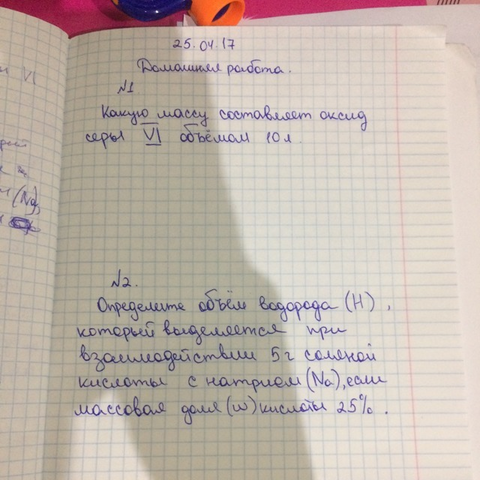 25.04.17
Домашняя работа.
№1
Какую массу составляет оксид
серы VI объёмом 10 л.
№2.
Определите объём водорода (H),
который выделяется при
взаимодействии 5 г соляной
кислоты с натрием (Na), если
массовая доля (w) кислоты 25%.
VI
(Na)